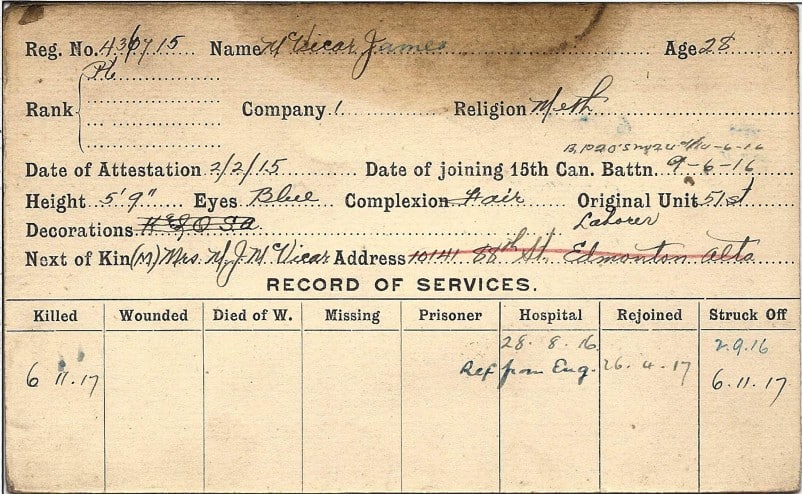 Reg. No. 436715 Name McVicar James Age 28
Pte
Rank Company 1 Religion Meth
9-6-16
Date of Attestation 2/2/15 Date of joining 15th Can. Battn. 9-6-16
Height 5' 9" Eyes Blue Complexion Fair Original Unit 51st
Decorations Laborer
Next of Kin (M) Mrs. M J. McVicar Address 10141 St. Edmonton Alta
RECORD OF SERVICES.
Killed Wounded Died of W. Missing Prisoner Hospital Rejoined Struck Off
28. 8. 16. 2.9.16
Ref from Eng. 26. 4. 17
6 11. 17 6. 11. 17